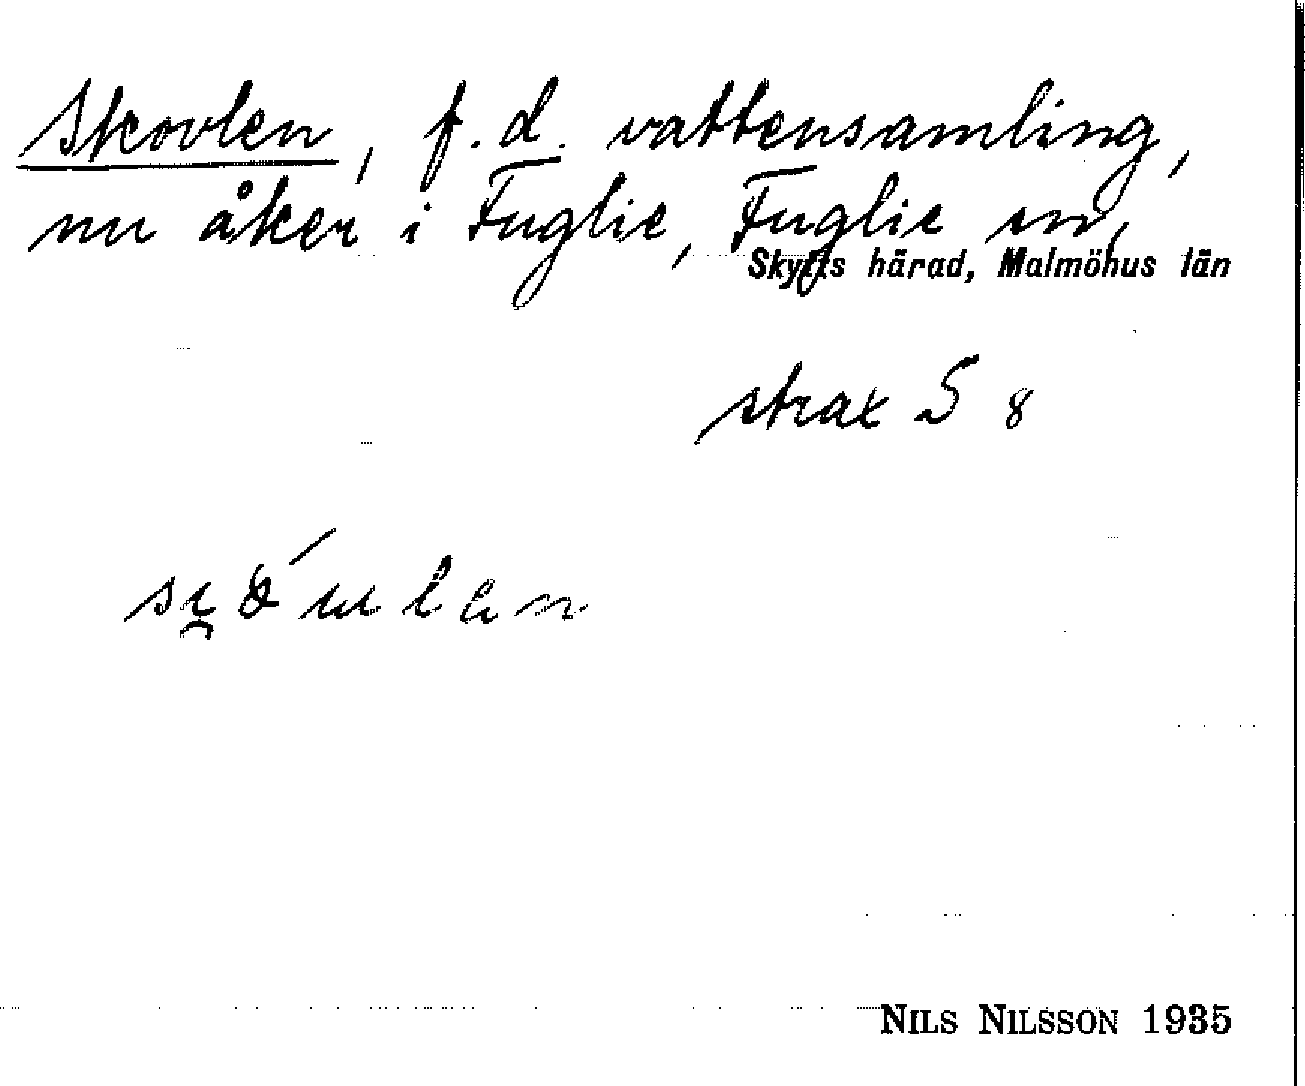 Skovlen, f.d. vattensamling,
nu åker i Fuglie, Fuglie sn,
Skytts härad, Malmöhus län
strax S 8
NILS NILSSON 1935